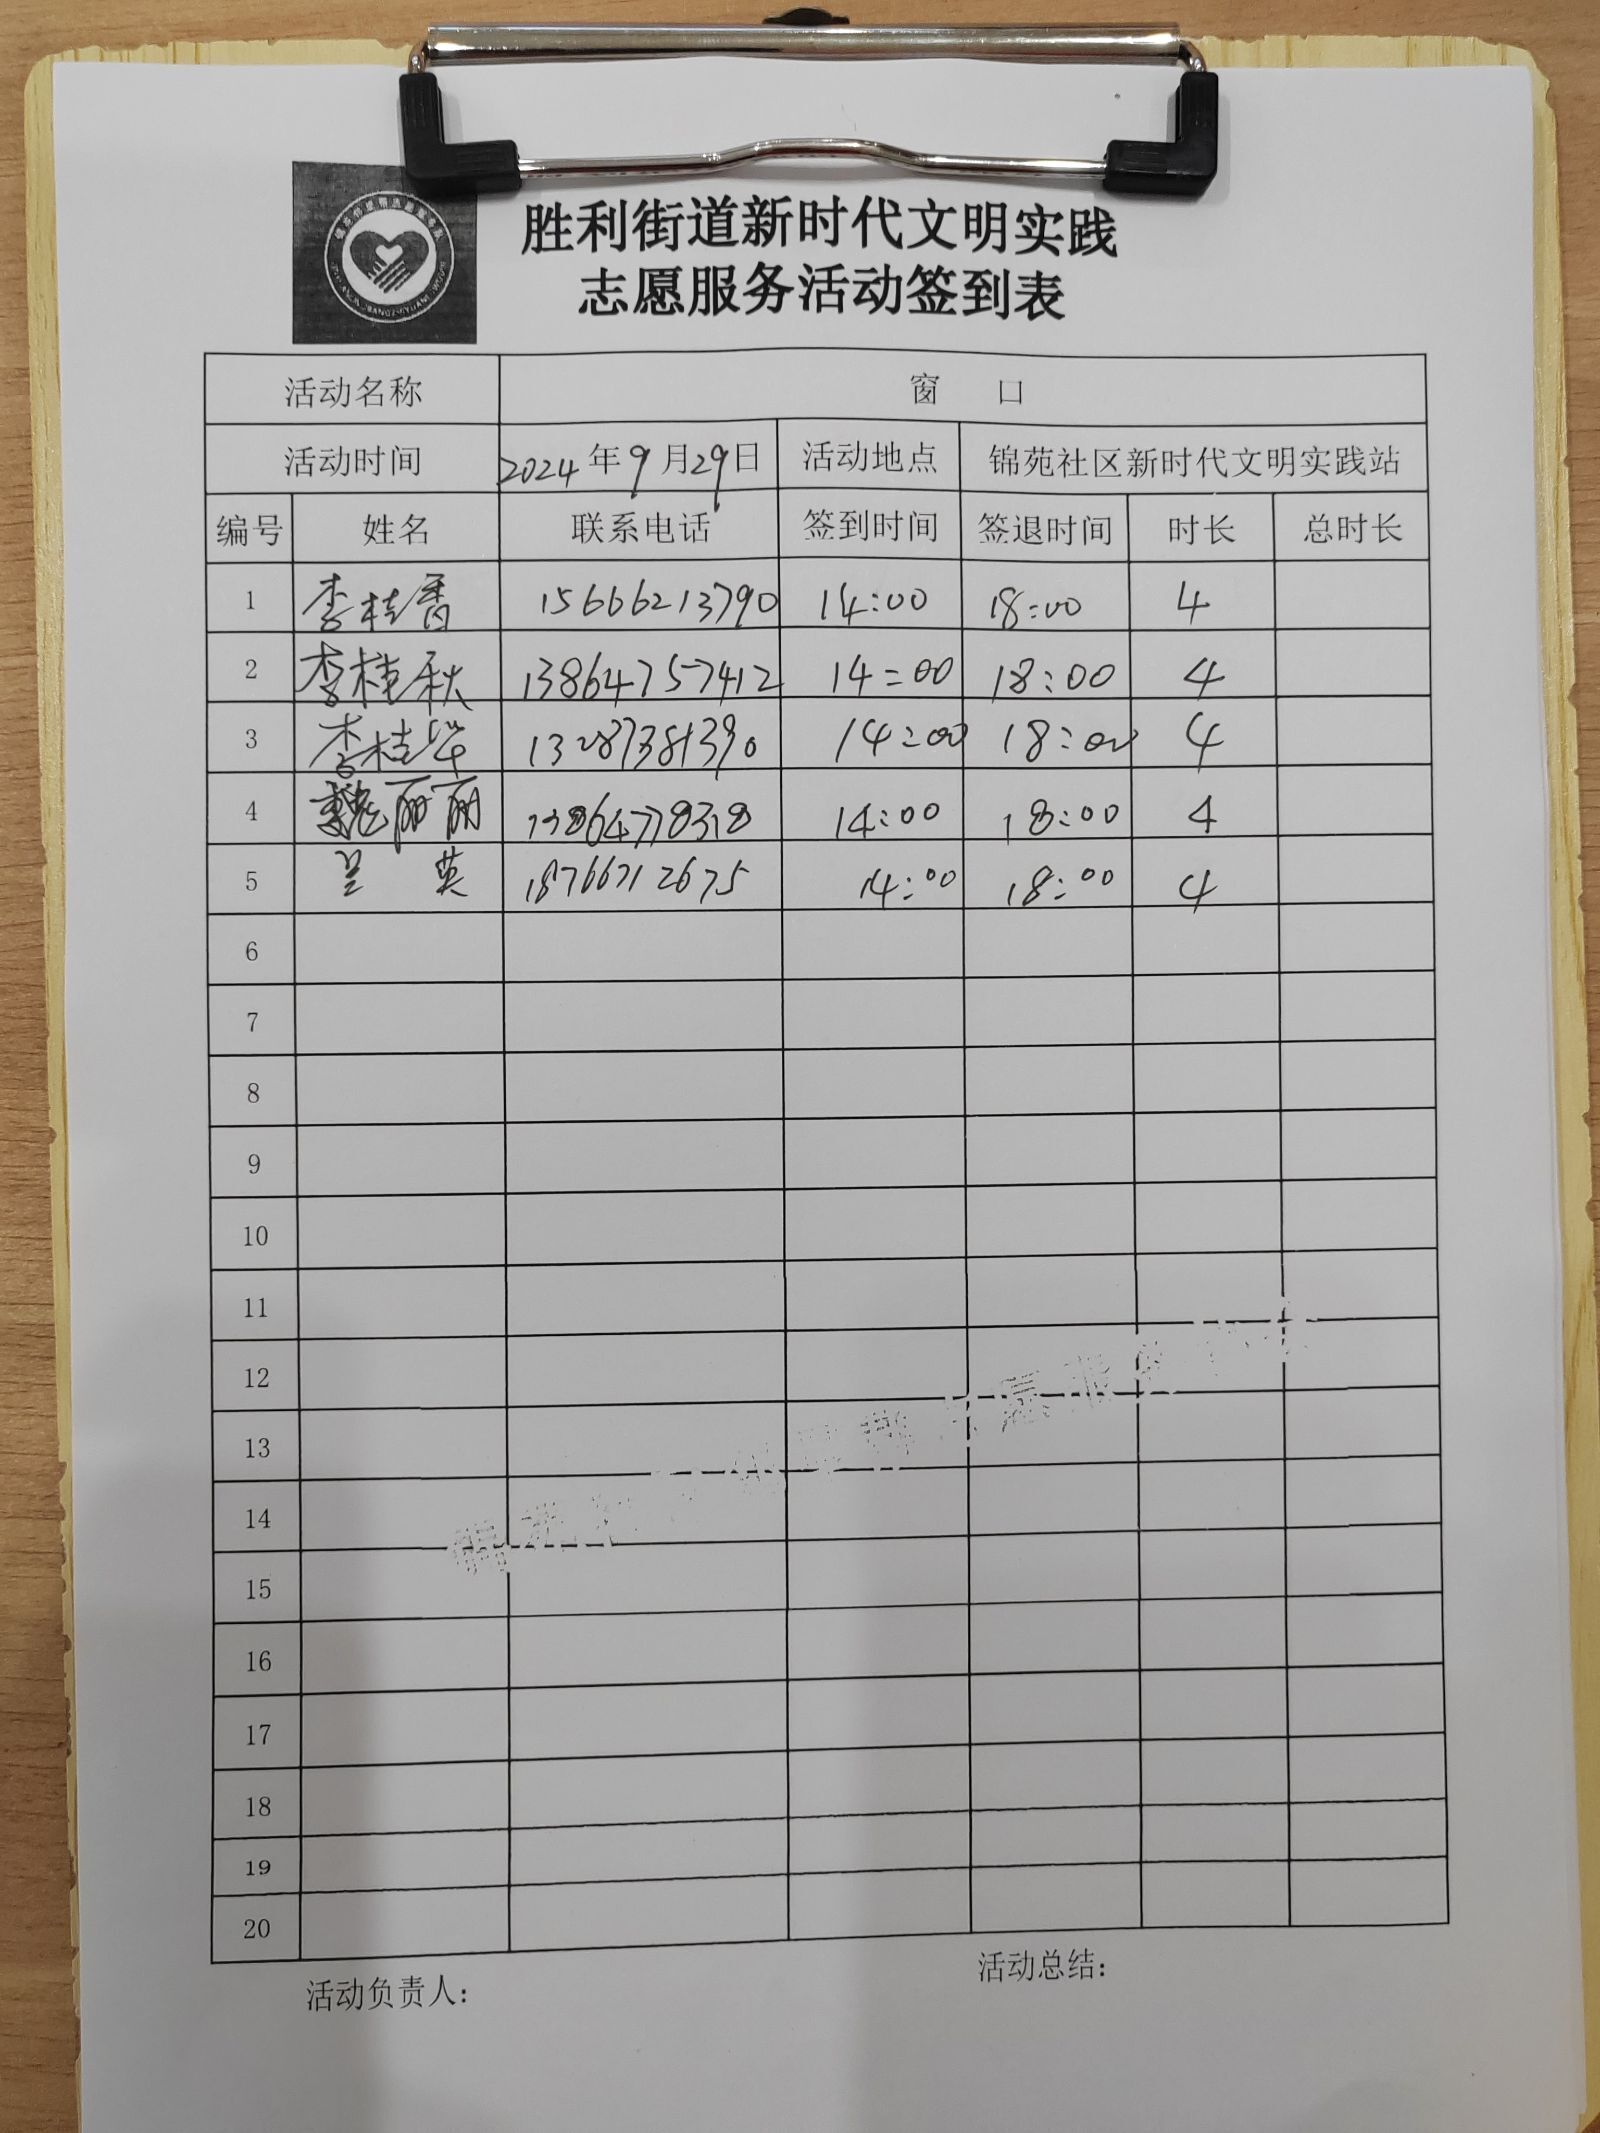 胜利街道新时代文明实践
志愿服务活动签到表
活动名称 窗 口
活动时间 2024年9月29日 活动地点 锦苑社区新时代文明实践站
编号 姓名 联系电话 签到时间 签退时间 时长 总时长
1 李桂香 15666213790 14:00 18:00 4
2 李桂秋 13864757412 14:00 18:00 4
3 李桂华 13287381390 14:00 18:00 4
4 魏丽丽 13864778318 14:00 18:00 4
5 兰英 18766712675 14:00 18:00 4
6
7
8
9
10
11
12
13
14
15
16
17
18
19
20
活动负责人: 活动总结: